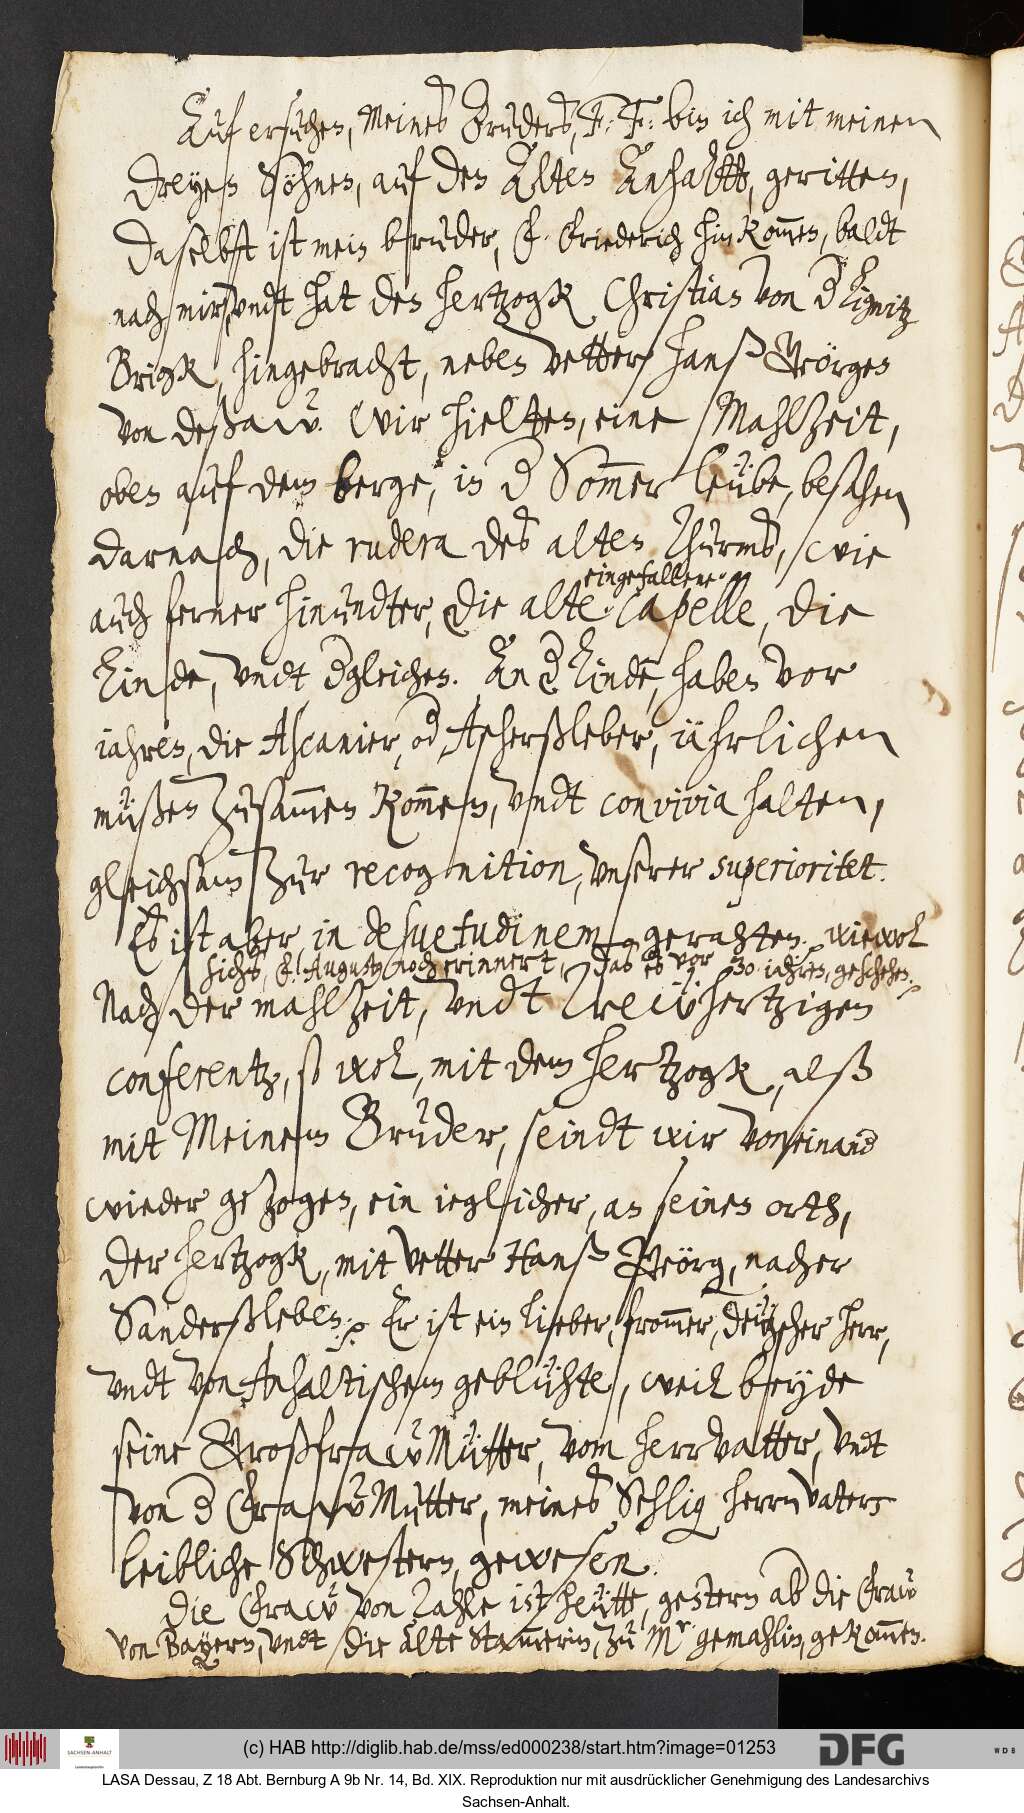 Auf ersuchen, meines Bruders, F. F. bin ich mit meinen
dreyen Söhnen, auf den Alten Anhaltt, geritten,
daselbst ist mein bruder, F. Friederich hin kom̄en, baldt
nach mir, undt hat den hertzogk Christian von d Lignitz
Brigk, hingebracht, neben vettern hanß Geörgen
von deßaw. Wir hielten, eine Mahlzeit,
oben auf dem berge, in d Som̄er leübe, besahen
darnach, die rudera des alten Thurms, wie
eingefallene
auch ferner hinundter, die alte Capelle, die
Linde, undt dgleichen. An d Linde, haben vor
iahren, die Ascanier, od Ascherßleber, iährlichen
müßen zusam̄en kom̄en, undt convivia halten,
gleichsam zur recognition, unserer superioritet.
Es ist aber in desuetudinem gerahten. wiewol
sichs, F. Augustus noch erinnert, das es vor 30 iahren, geschehen.
Nach der mahlzeit, undt Trewhertzigen
conferentz, so wol, mit dem hertzogk, alß
mit Meinem Bruder, seindt wir von einand
wieder gezogen, ein ieglicher, an seinen orth,
der hertzogk, mit vetter Hanß Geörg, nacher
Sanderßleben. Er ist ein lieber, from̄er, deützscher herr,
undt von Anhaltischem geblühte, weil beyde
seine Großfraw Mütter, vom herrvatter, undt
von d Fraw Mutter, meines Sehlig herrn vaters
leibliche Schwestern, gewesen.
Die Fraw von Zahle ist heütte, gestern ab die Fraw
von Bayern, undt die alte Stam̄erin, zu Mr gemahlin, gekom̄en.
(c) HAB http://diglib.hab.de/mss/ed000238/start.htm?image=01253
SACHSEN-ANHALT
DFG
WDB
LASA Dessau, Z 18 Abt. Bernburg A 9b Nr. 14, Bd. XIX. Reproduktion nur mit ausdrücklicher Genehmigung des Landesarchivs
Sachsen-Anhalt.